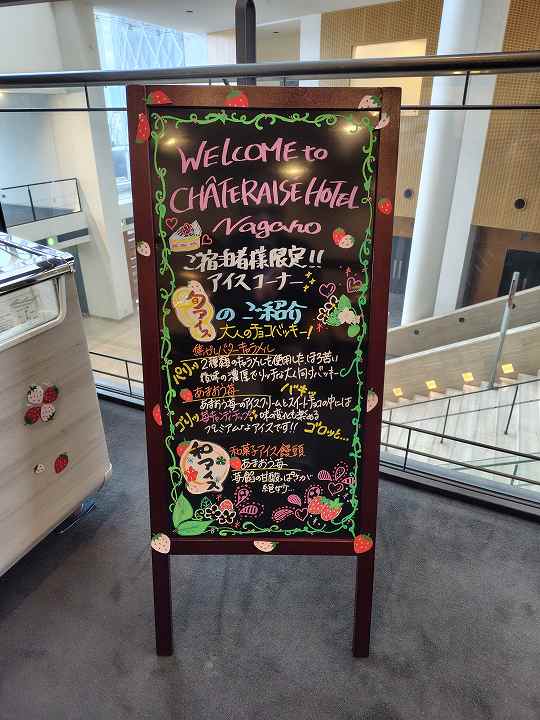 WELCOME to
CHÂTERAISE HOTEL
Nagano
ご宿泊者様限定!!
アイスコーナー
旬アイス
のご紹介
大人のチョコバッキー!
焦がしバターキャラメル
パリッ
2種類のキャラメルを使用したほろ苦い
後味の濃厚でリッチな大人向けバッキー
あまおう苺
バキッ
ゴロッ
あまおう苺のアイスクリームとスイートチョコの中には
苺キャンディチップ
味の変化も楽める
プレミアムなアイスです!!
ゴロッと...
和アイス
和菓子アイス饅頭
あまおう苺
苺餡の甘酸っぱさが
絶妙♡